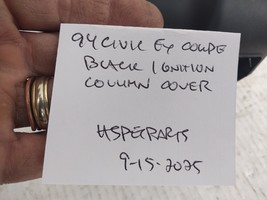 94 CIVIC EX COUPE
BLACK IGNITION
COLUMN COVER
HSPEEPARTS
9-15-2025